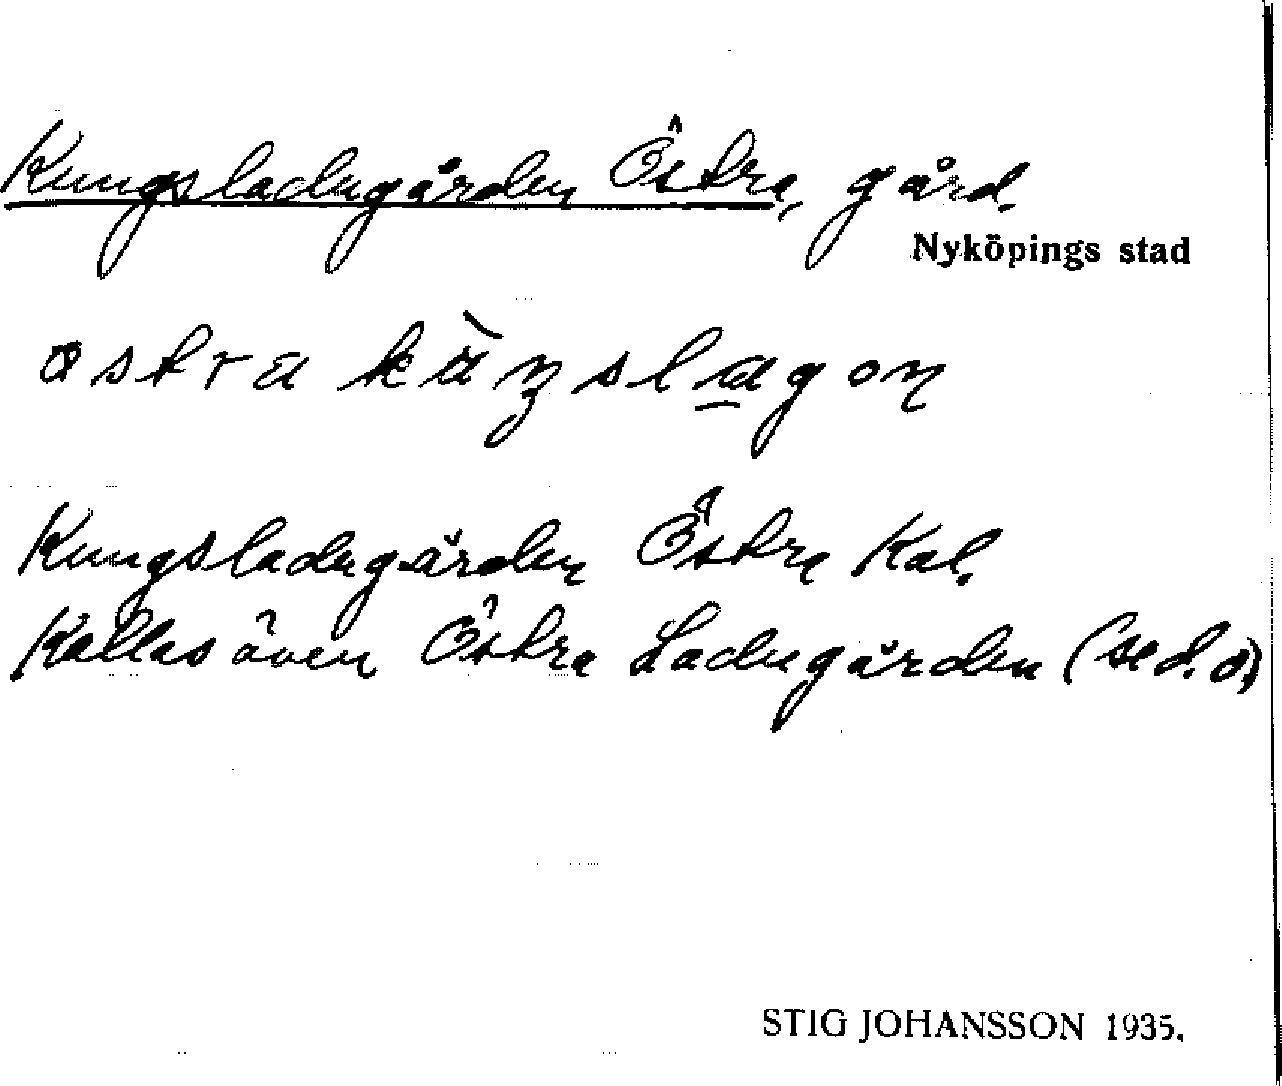 Kungsladugården Östra, gård.
Nyköpings stad
Kungsladugården Östra Kal.
Kallas även Östra Ladugården (se d. o)
STIG JOHANSSON 1935.